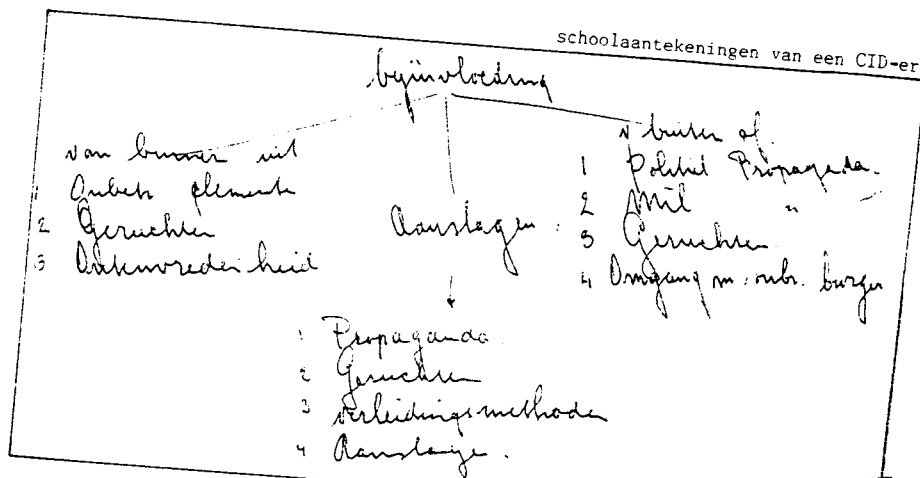 schoolaantekeningen van een CID-er
beÿinvloeding
van binnen uit
1 Onbetr elemente
2 Geruchten
3 Ontevredenheid
Aanslagen.
v buiten af
1 Politiek Propaganda.
2 Mil "
3 Geruchten
4 Omgang m. onbr. burger
1 Propaganda
2 Geruchten
3 verleidingsmethoden
4 Aanslagen.